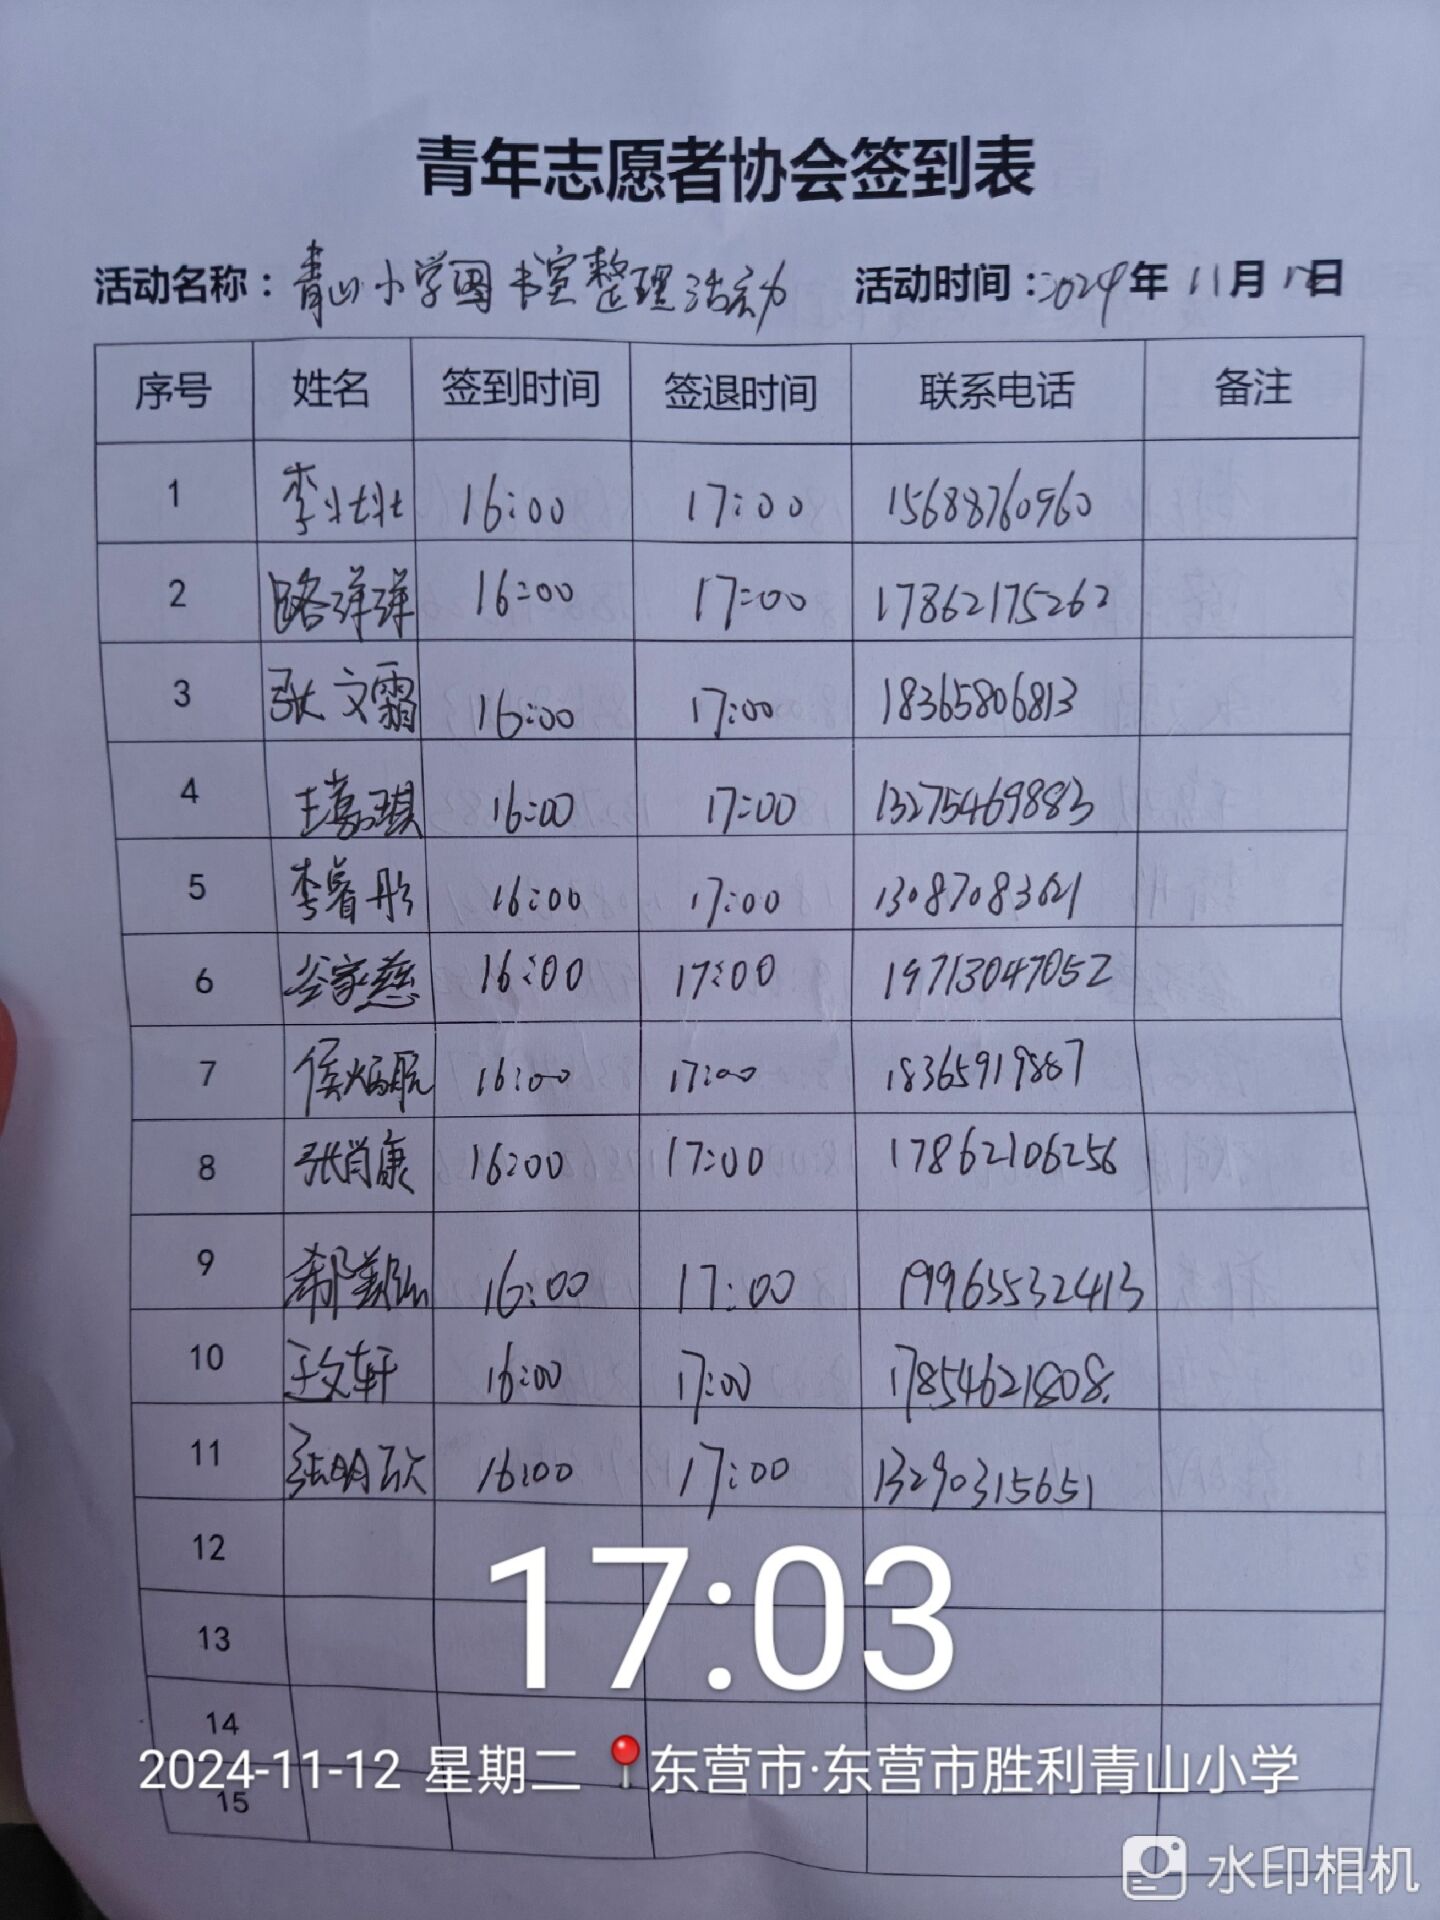 青年志愿者协会签到表
活动名称：青山小学图书室整理活动 活动时间：2024年11月12日
序号 姓名 签到时间 签退时间 联系电话 备注
1 李壮壮 16:00 17:00 15688760960
2 路洋洋 16:00 17:00 17862175262
3 张文霜 16:00 17:00 18365806813
4 王嘉琪 16:00 17:00 13275469883
5 李睿彤 16:00 17:00 13087083621
6 谷家慈 16:00 17:00 19713047052
7 侯炳 16:00 17:00 18365919887
8 张肖康 16:00 17:00 17862106256
9 16:00 17:00 19965532413
10 王文轩 16:00 17:00 17854621808
11 张明欣 16:00 17:00 13290315651
12
13
14
15
17:03
2024-11-12 星期二 东营市·东营市胜利青山小学
水印相机